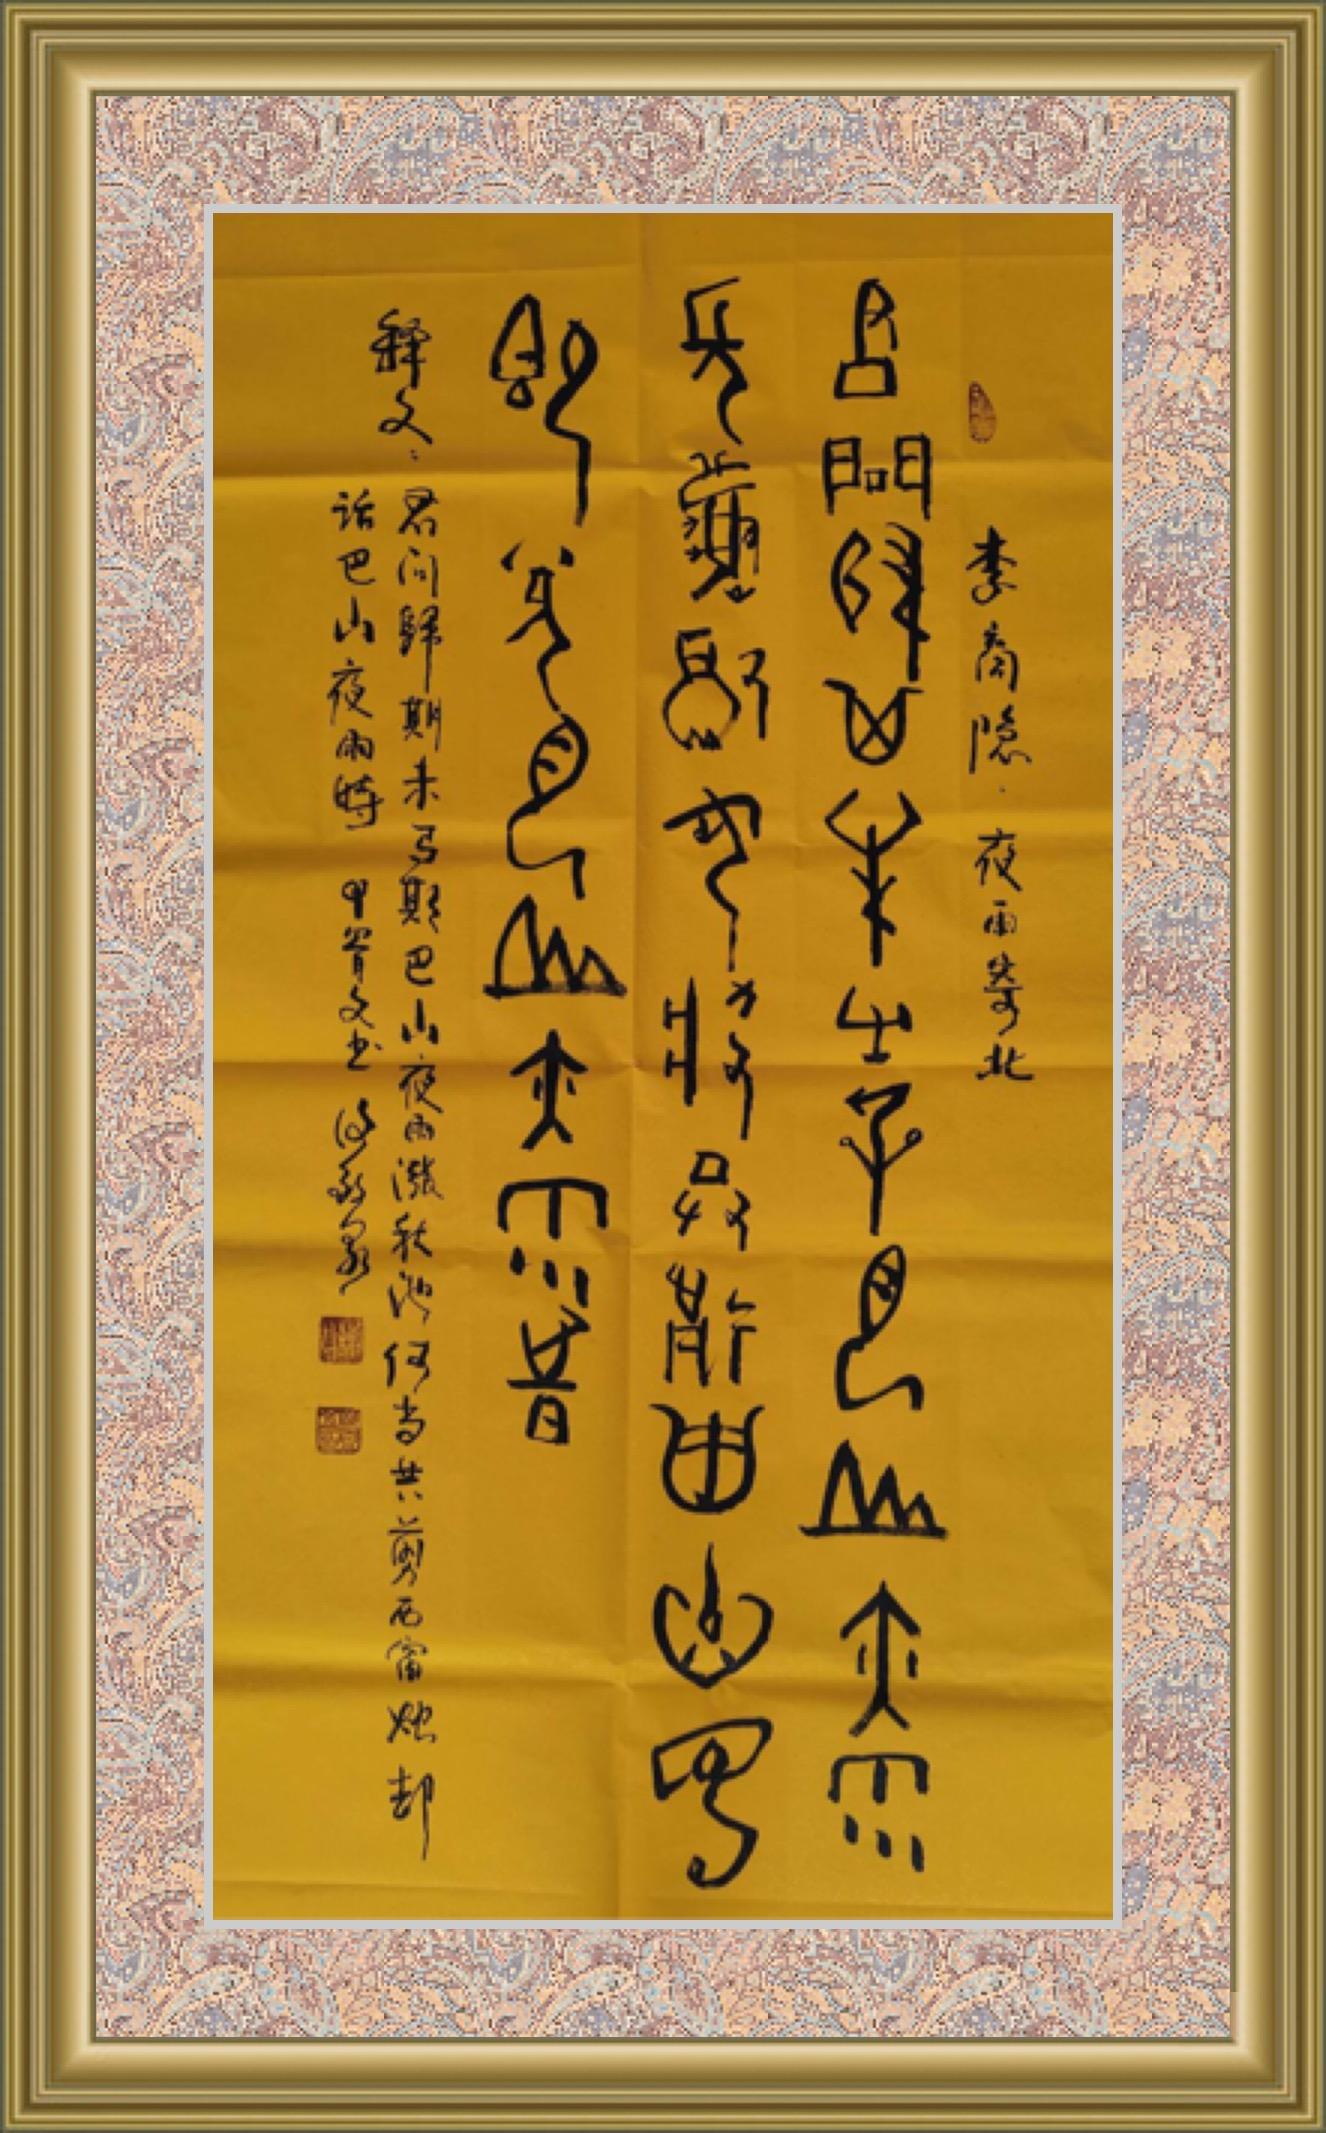 李商隐·夜雨寄北
君問歸期未㞢期巴山夜雨
漲秋池何當共剪西窗燭
卻話巴山夜雨時
释文：君问歸期未有期巴山夜雨涨秋池何当共剪西窗烛却
话巴山夜雨時 甲骨文书